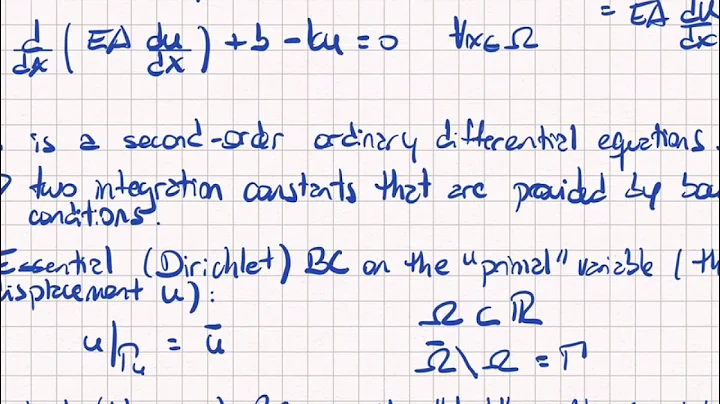 = EA du/dx
d/dx ( EA du/dx ) + b - ku = 0 ∀x∈Ω
is a second-order ordinary differential equations.
two integration constants that are provided by bou
conditions.
Essential (Dirichlet) BC on the "primal" variable ( th
isplacement u ) :
Ω ⊂ ℝ
u|Γu = ū
Ω̄ \ Ω = Γ